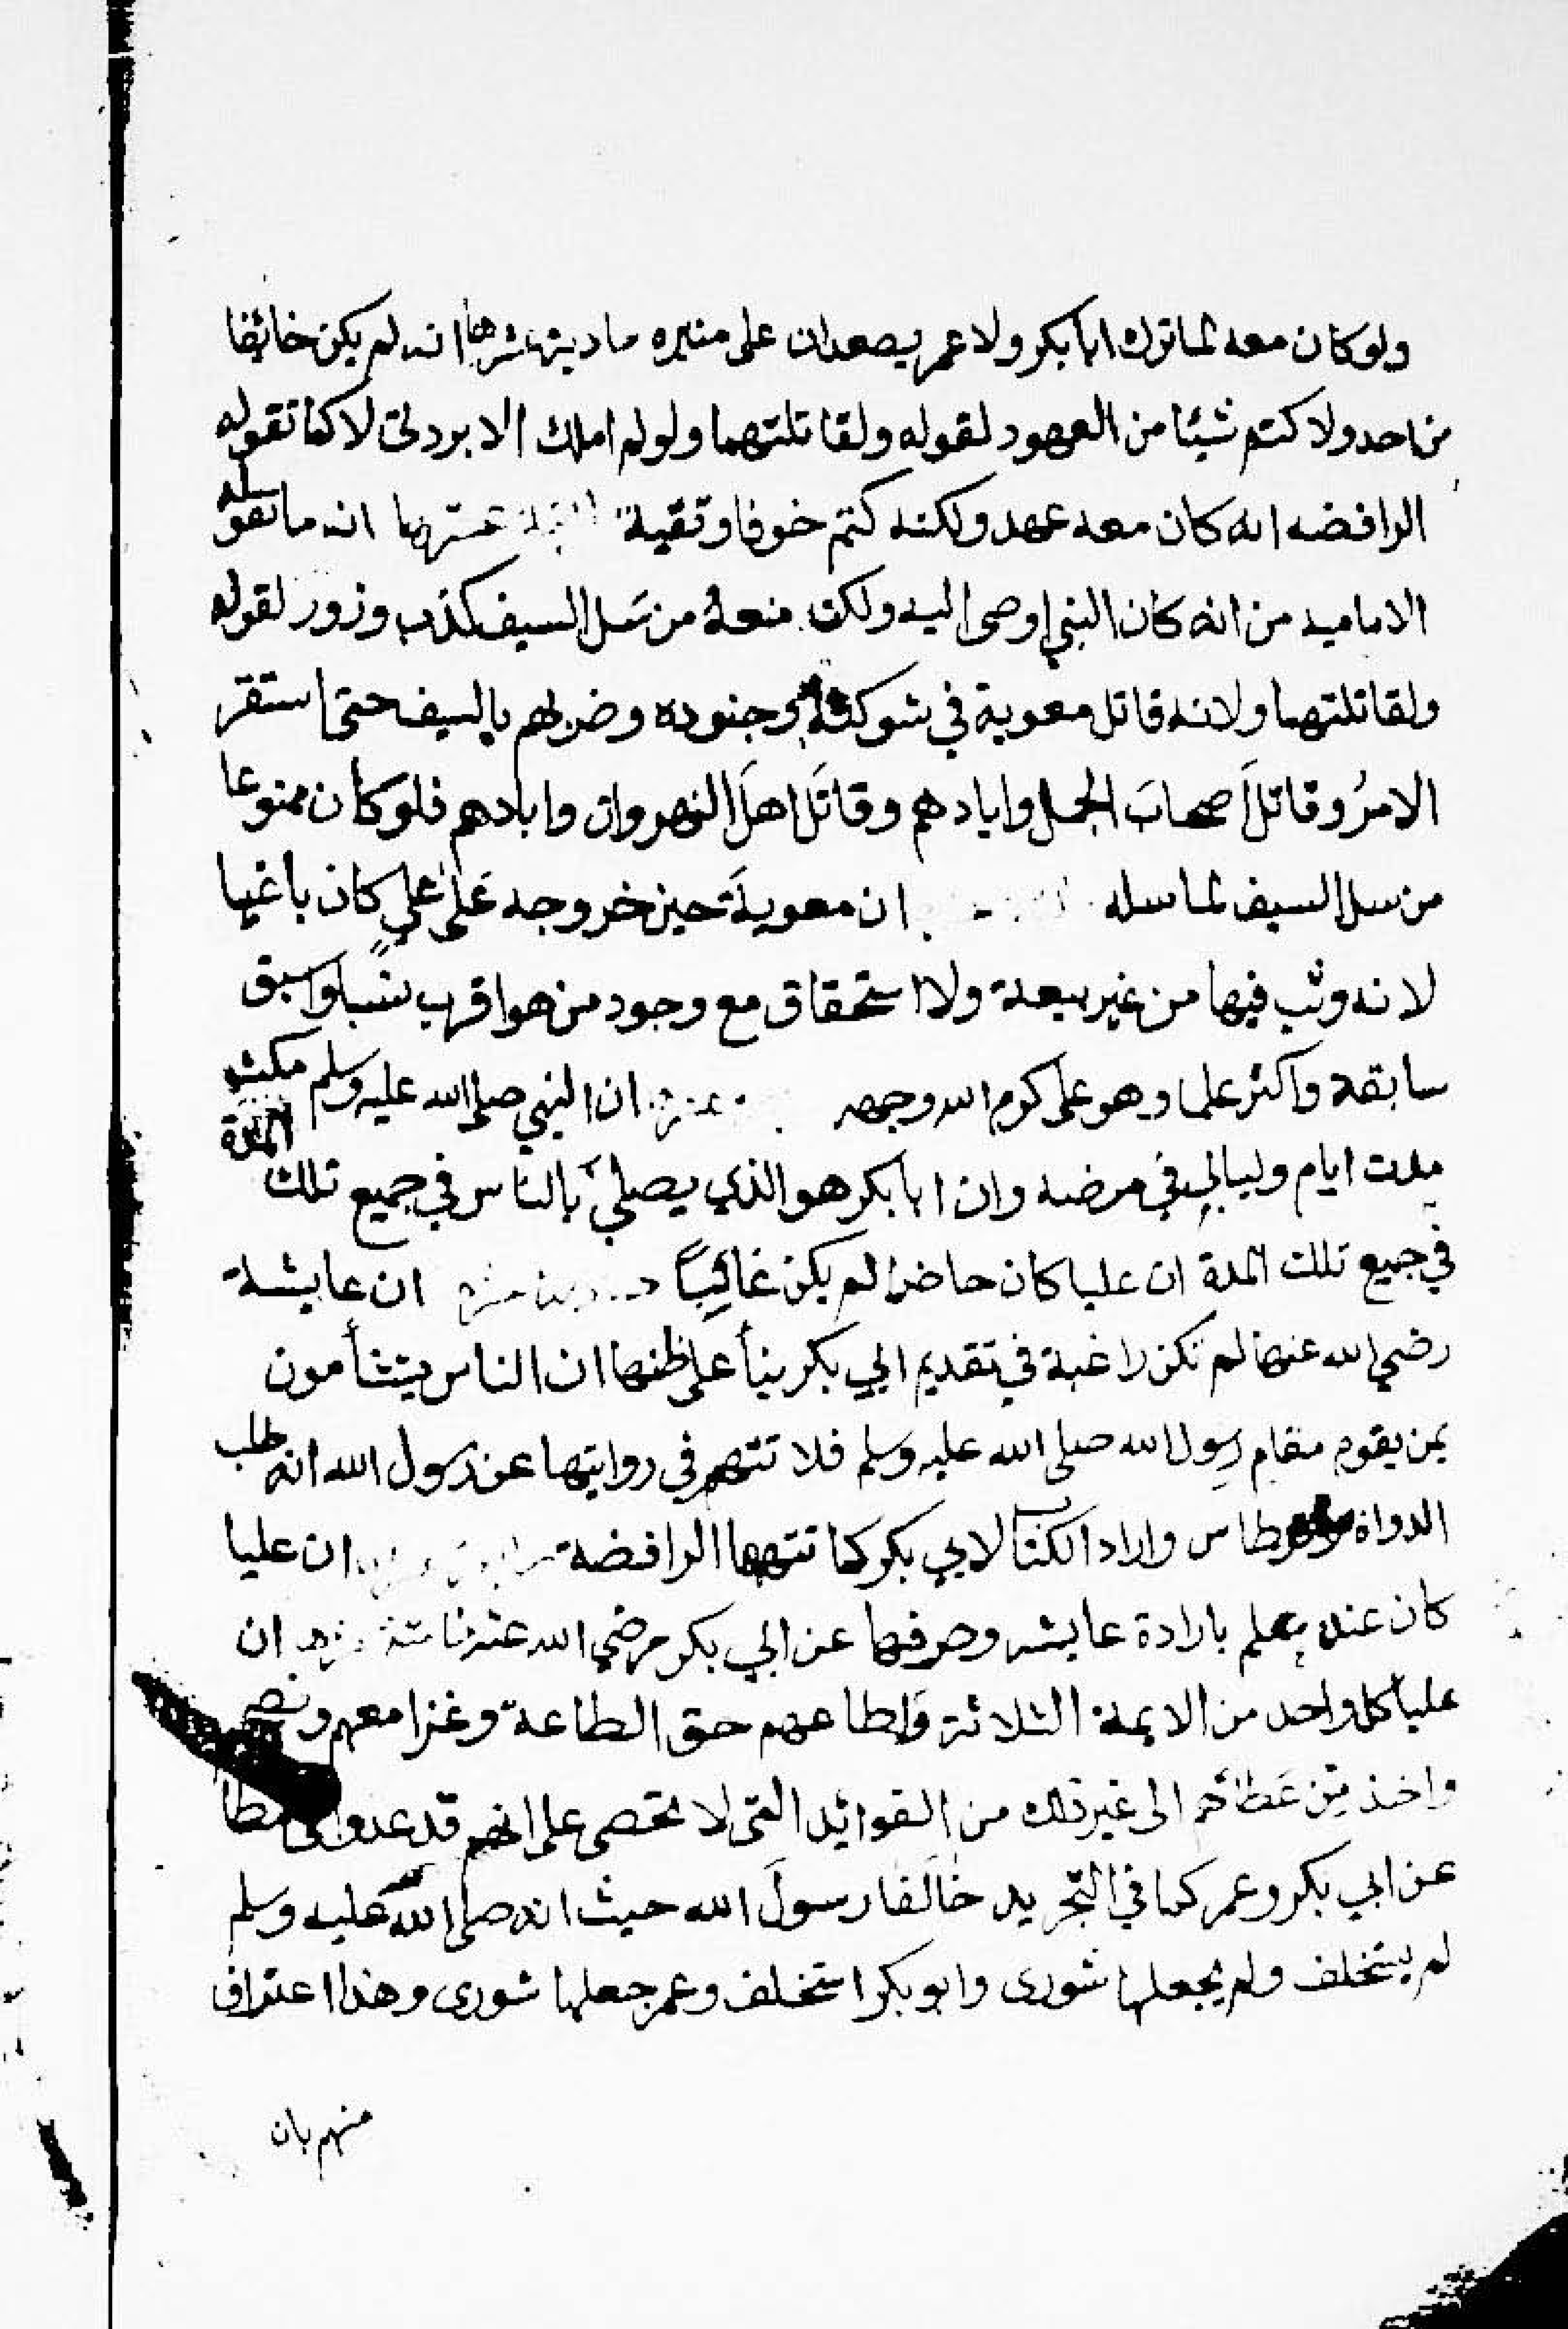 ولو كان معه لما ترك ابا بكر ولا عمر يصعدان على منبره حادية عشرها انه لم يكن خائفا
من احد ولا كتم شيئا من العهود لقوله ولقاتلتهما ولو لم املك الا بردتي لا كما تقوله
الرافضه انه كان معه عهد ولكنه كتم خوفا وتقية عشرها ان ما تقوله
الاماميه من انه كان النبي اوصى اليه ولكن منعه من سَل السيف كذب وزور لقوله
ولقاتلتهما ولانه قاتل معوية في شوكته وجنوده وضربهم بالسيف حتى استقر
الامرُ وقاتلَ اصحابَ الجمل وابادهم وقاتَل اهلَ النهروان وابادهم فلو كان ممنوعا
من سل السيف لما سله ان معويةَ حين خروجه عَلى علي كان باغيا
لانه وثب فيها من غير بيعة ولا استحقاق مع وجود من هو اقرب نسبًا واسبق
سابقة واكثر علما وهو على كرم الله وجهه ان النبي صلى الله عليه وسلم مكث
ايام وليالي في مرضه وان ابا بكر هو الذي يصلي بالناس في جميع تلك المدة
في جميع تلك المدة ان عليا كان حاضرا لم يكن غائبًا ان عايشة
رضي الله عنها لم تكن راغبة في تقديم ابي بكر بنأ على ظنها ان الناس يتشأمون
بمن يقوم مقام رسول الله صلى الله عليه وسلم فلا تتهم في روايتها عن رسول الله انه طلب
الدواة وقرطاس واراد الكتاب لابي بكر كما تتهمها الرافضة ان عليا
كان عنده علم بارادة عايشه وصرفها عن ابي بكر رضي الله عنه ان
عليا كل واحد من الايمة الثلاثة واطاعهم حق الطاعة وغزا معهم
واخذ من عَطائهم الى غير ذلك من الفوائد التى لا تحصى على انهم قد عدوا
عن ابي بكر وعمر كما في التجريد خالفا رسولَ الله حيث انه صلى الله عليه وسلم
لم يستخلف ولم يجعلها شورى وابو بكر استخلف وعمر جعلها شورى وهذا اعتراف
منهم بان